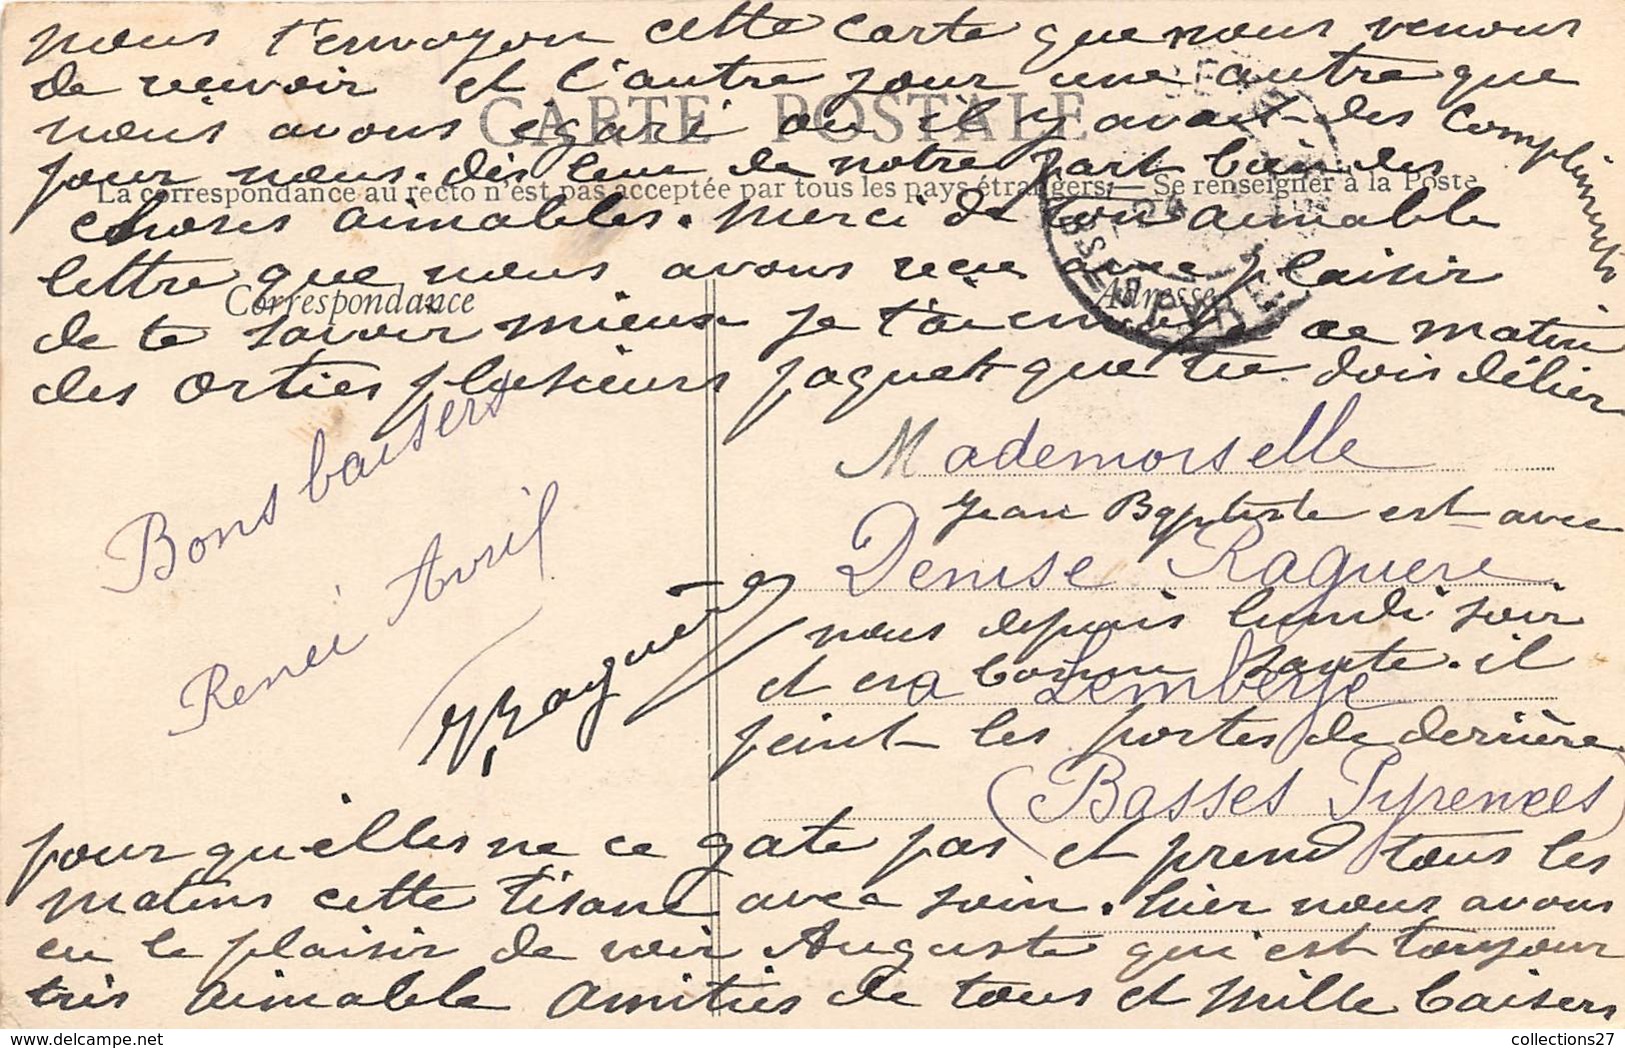 nous t'envoyon cette carte que nous venons
de recevoir et l'autre jour une autre que
CARTE POSTALE
nous avons égaré ou il y avait des compliments
pour nous. dis leur de notre part bien des
La correspondance au recto n'est pas acceptée par tous les pays étrangers. — Se renseigner à la Poste
choses aimables. merci de ton aimable
lettre que nous avons reçu avec plaisir
Correspondance
Adresse
de te savoir mieux je t'ai envoyé ce matin
des orties plusieurs paquets que tu dois délier
Bons baisers
Renée Avril
Mademoiselle
Jean Baptiste est avec
Denise Raguere
nous depuis lundi soir
et en bonne sante. il
a Lembeye
peint les portes de derrière
(Basses Pyrenees)
pour qu'elles ne ce gate pas et prend tous les
matins cette tisane avec soin. hier nous avons
eu le plaisir de voir Auguste qui est toujour
très aimable amitiés de tous et mille baisers
collections27